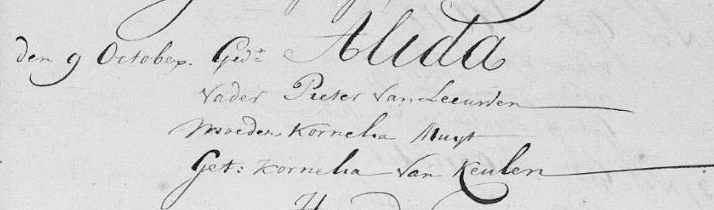 den 9 October. Gedt Alida
Vader Pieter Van Leeuwen
Moeder Kornelia Muyt
Get: Kornelia Van Keulen